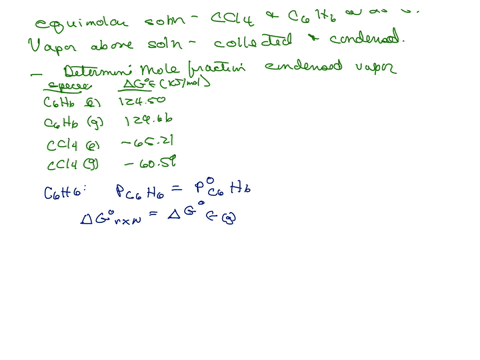 equimolar soln - CCl4 & C6H6
Vapor above soln - collected & condensed.
- Determine Mole fraction condensed vapor
species ΔG°f (kJ/mol)
C6H6 (l) 124.50
C6H6 (g) 129.66
CCl4 (l) -65.21
CCl4 (g) -60.59
C6H6: P C6H6 = P° C6H6
ΔG°rxn = ΔG°f (g)